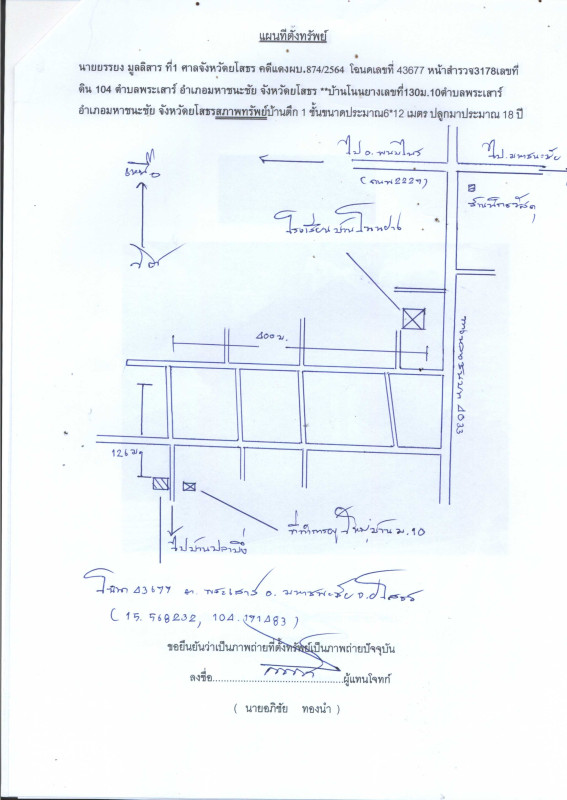 แผนที่ตั้งทรัพย์
นายยรรยง มูลลิสาร ที่1 ศาลจังหวัดยโสธร คดีแดงผบ.874/2564 โฉนดเลขที่ 43677 หน้าสำรวจ3178เลขที่
ดิน 104 ตำบลพระเสาร์ อำเภอมหาชนะชัย จังหวัดยโสธร **บ้านโนนยางเลขที่130ม.10ตำบลพระเสาร์
อำเภอมหาชนะชัย จังหวัดยโสธรสภาพทรัพย์บ้านตึก 1 ชั้นขนาดประมาณ6*12 เมตร ปลูกมาประมาณ 18 ปี
ไป อ. พนมไพร
ไป มหาชนะชัย
เหนือ
(ถนน 2229)
ร้านนิกรวัสดุ
ใต้
โรงเรียนบ้านโนนยาง
400 ม.
ทางหลวงชนบท 4033
126 ม.
ที่ทำการผู้ใหญ่บ้าน ม.10
ไปบ้านปลาปึ่ง
โฉนด 43677 ต. พระเสาร์ อ. มหาชนะชัย จ.ยโสธร
(15.568232, 104.191483)
ขอยืนยันว่าเป็นภาพถ่ายที่ตั้งทรัพย์เป็นภาพถ่ายปัจจุบัน
ลงชื่อ..........................................ผู้แทนโจทก์
( นายอภิชัย ทองนำ )